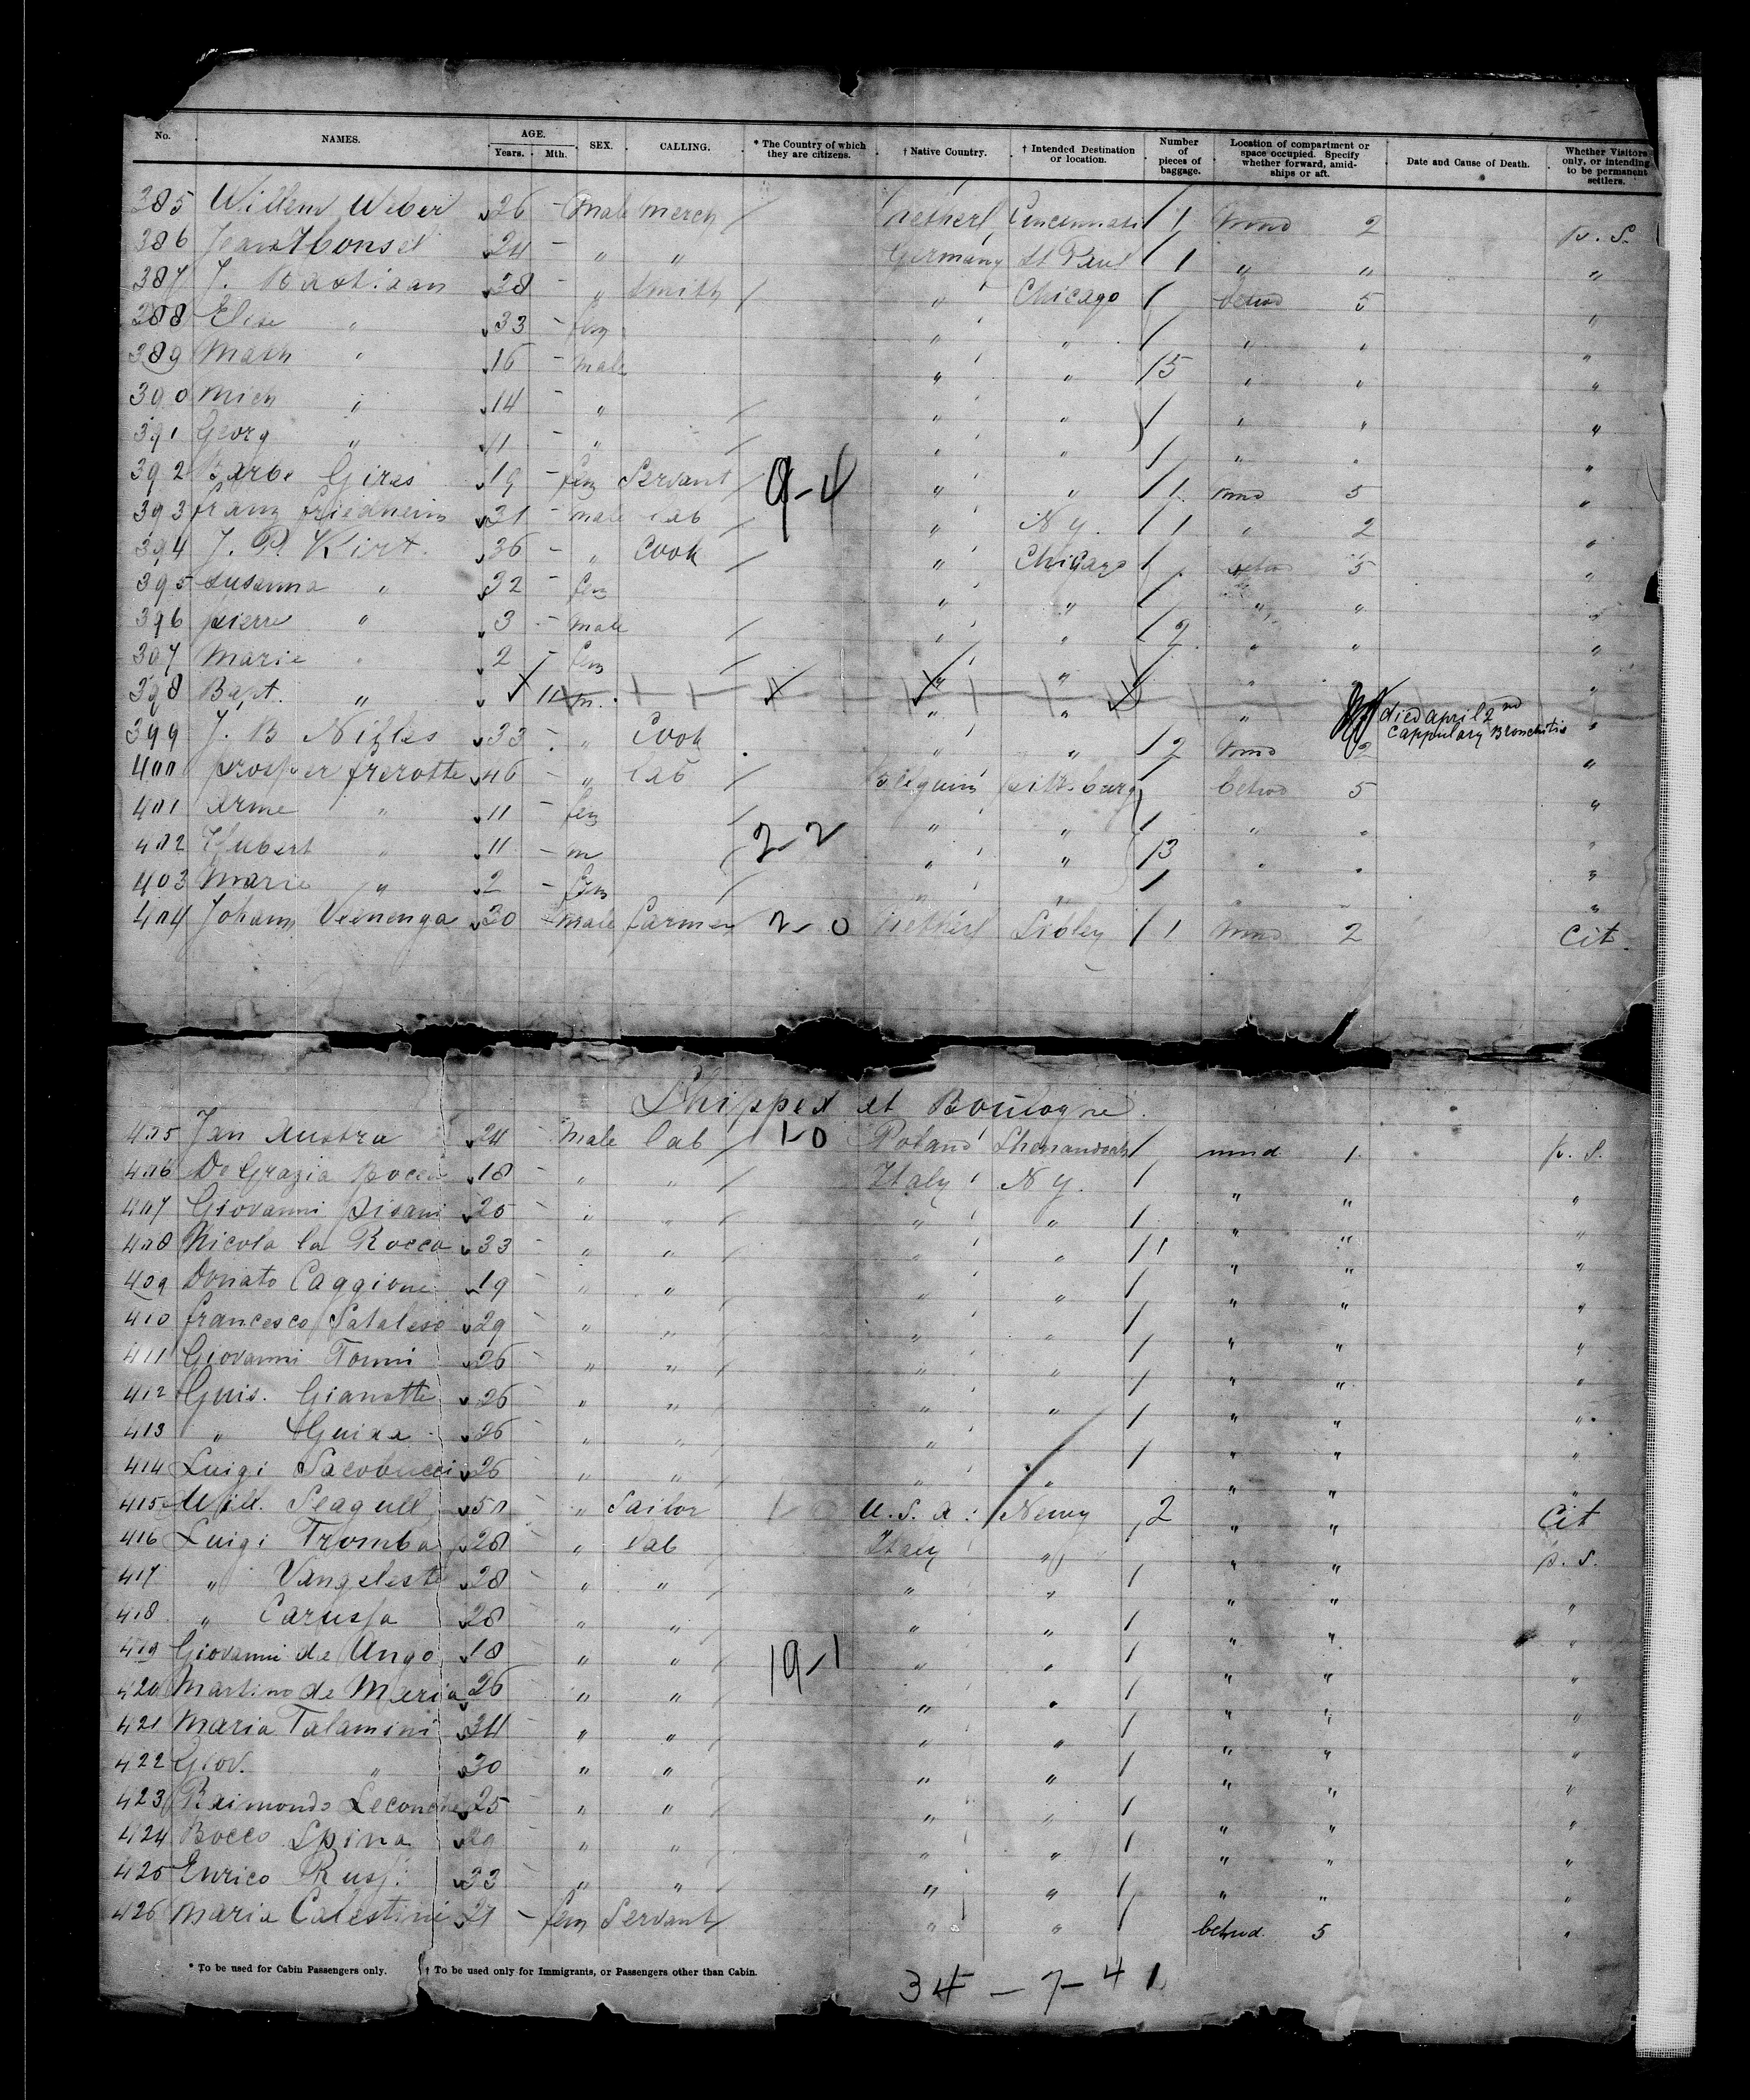 No. NAMES. AGE. Years. Mth. SEX. CALLING. * The Country of which they are citizens. † Native Country. † Intended Destination or location. Number of pieces of baggage. Location of compartment or space occupied. Specify whether forward, amidships or aft. Date and Cause of Death. Whether Visitors only, or intending to be permanent settlers.
385 Willem Weber 26 - male merch / Netherl Cincinnati / 1 mmd 2 p. S.
386 Jean Honsel 24 - " " Germany St Paul / 1 " " "
387 J. Bastian 28 - " Smith / " Chicago / betwd 5 "
388 Elise " 33 - fem " " / " " "
389 Math " 16 - male " " / 5 " " "
390 Mich " 14 - " / " " / " " "
391 Georg " 11 - " / " " / " " "
392 Barbe Giras 19 - fem Servant / 9-4 " " / 1 mmd 5 "
393 franz 31 - male lab / " N y. / 1 " 2 "
394 J. P. Kirt. 36 - " Cook / " Chicago / betwd 5 "
395 Susanna " 32 - fem " " / " " "
396 pierre " 3 - male / " " / 2 " " "
397 Marie " 2 - fem / " " / " " "
398 Bapt. " 11 m. " " " died april 2nd Cappulary Bronchitis "
399 J. B Nifles 33 - " Cook " " / 2 mmd 2 "
400 prosper frerotte 46 - " lab / Belguim pitts-burg / betwd 5 "
401 " 11 - fem / " " / " " "
402 Hubert " 11 - m / 2-2 " " / 3 " " "
403 Marie " 2 - fem / " " / " " "
404 Johann Veenenga 30 - male farmer 2-0 Netherl Sibley / 1 mmd 2 Cit.
Shipped at Boulogne.
405 Jan Austra 24 male lab / 1-0 Poland Shenandoah / mmd 1 p. S.
406 De Grazia Rocco 18 - " " / Italy N y. / " " "
407 Giovanni Pisani 25 - " " / " " / " " "
408 Nicola la Rocca 33 - " " / " " / 1 " " "
409 Donato Caggione 19 - " " / " " / " " "
410 francesco 29 - " " / " " / " " "
411 Giovanni Tonni 26 - " " / " " / " " "
412 Guis. Gianotte 26 - " " / " " / " " "
413 " Guida 26 - " " / " " / " " "
414 Luigi Jacobucci 26 - " " " " " " "
415 Will. Seagull 50 " Sailor U. S. A. N 2 " " Cit
416 Luigi Tromba 28 " lab Italy " " " p. S.
417 " Vangeleste 28 - " " / " " / " " "
418 " Carussa 28 - " " / " " / " " "
419 Giovanni de Ungo 18 - " " / 19-1 " " / " " "
420 Martino de Maria 26 - " " / " " / " " "
421 Maria Talamini 34 - " " / " " / " " "
422 Giov. " 30 " " / " " / " " "
423 Raimondo 25 - " " / " " / " " "
424 Rocco Spina 29 " " / " " / " " "
425 Enrico Russ. 33 - " " / " " / " " "
426 Maria Calestini 27 - fem Servant " " / betwd. 5 "
* To be used for Cabin Passengers only. † To be used only for Immigrants, or Passengers other than Cabin.
34 - 7 - 41